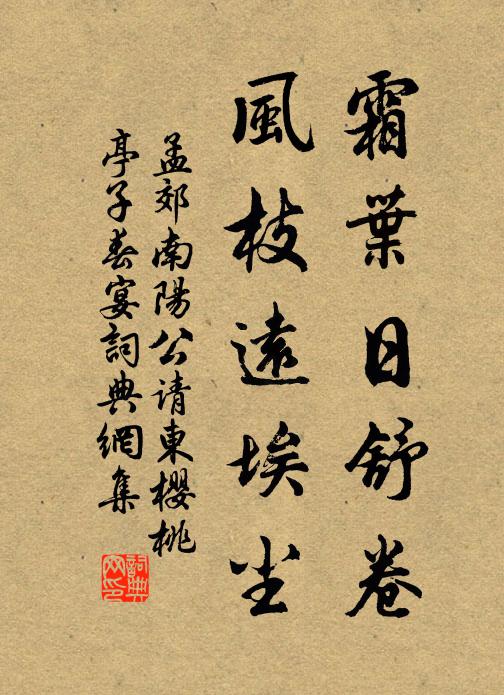 霜葉日舒卷
風枝遠埃尘
孟郊南陽公请東櫻桃
亭子春宴詞典網集
詞典网印